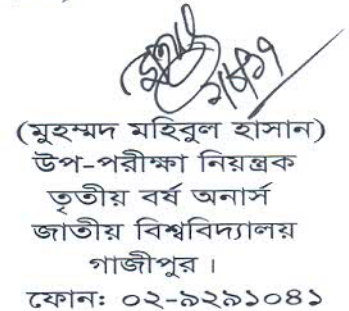 (মুহম্মদ মহিবুল হাসান)
উপ-পরীক্ষা নিয়ন্ত্রক
তৃতীয় বর্ষ অনার্স
জাতীয় বিশ্ববিদ্যালয়
গাজীপুর ।
ফোনঃ ০২-৯২৯১০৪১